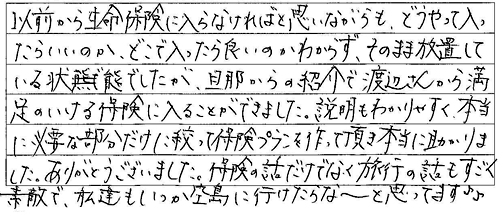 以前から生命保険に入らなければと思いながらも、どうやって入っ
たらいいのか、どこで入ったら良いのかわからず、そのまま放置して
いる状態でしたが、旦那からの紹介で渡辺さんから満
足のいける保険に入ることができました。説明もわかりやすく、本当
に必要な部分だけに絞って保険プランを作って頂き本当に助かりま
した。ありがとうございました。保険の話だけでなく旅行の話もすごく
素敵で、私達もいつか空島に行けたらな〜と思ってます♪♪